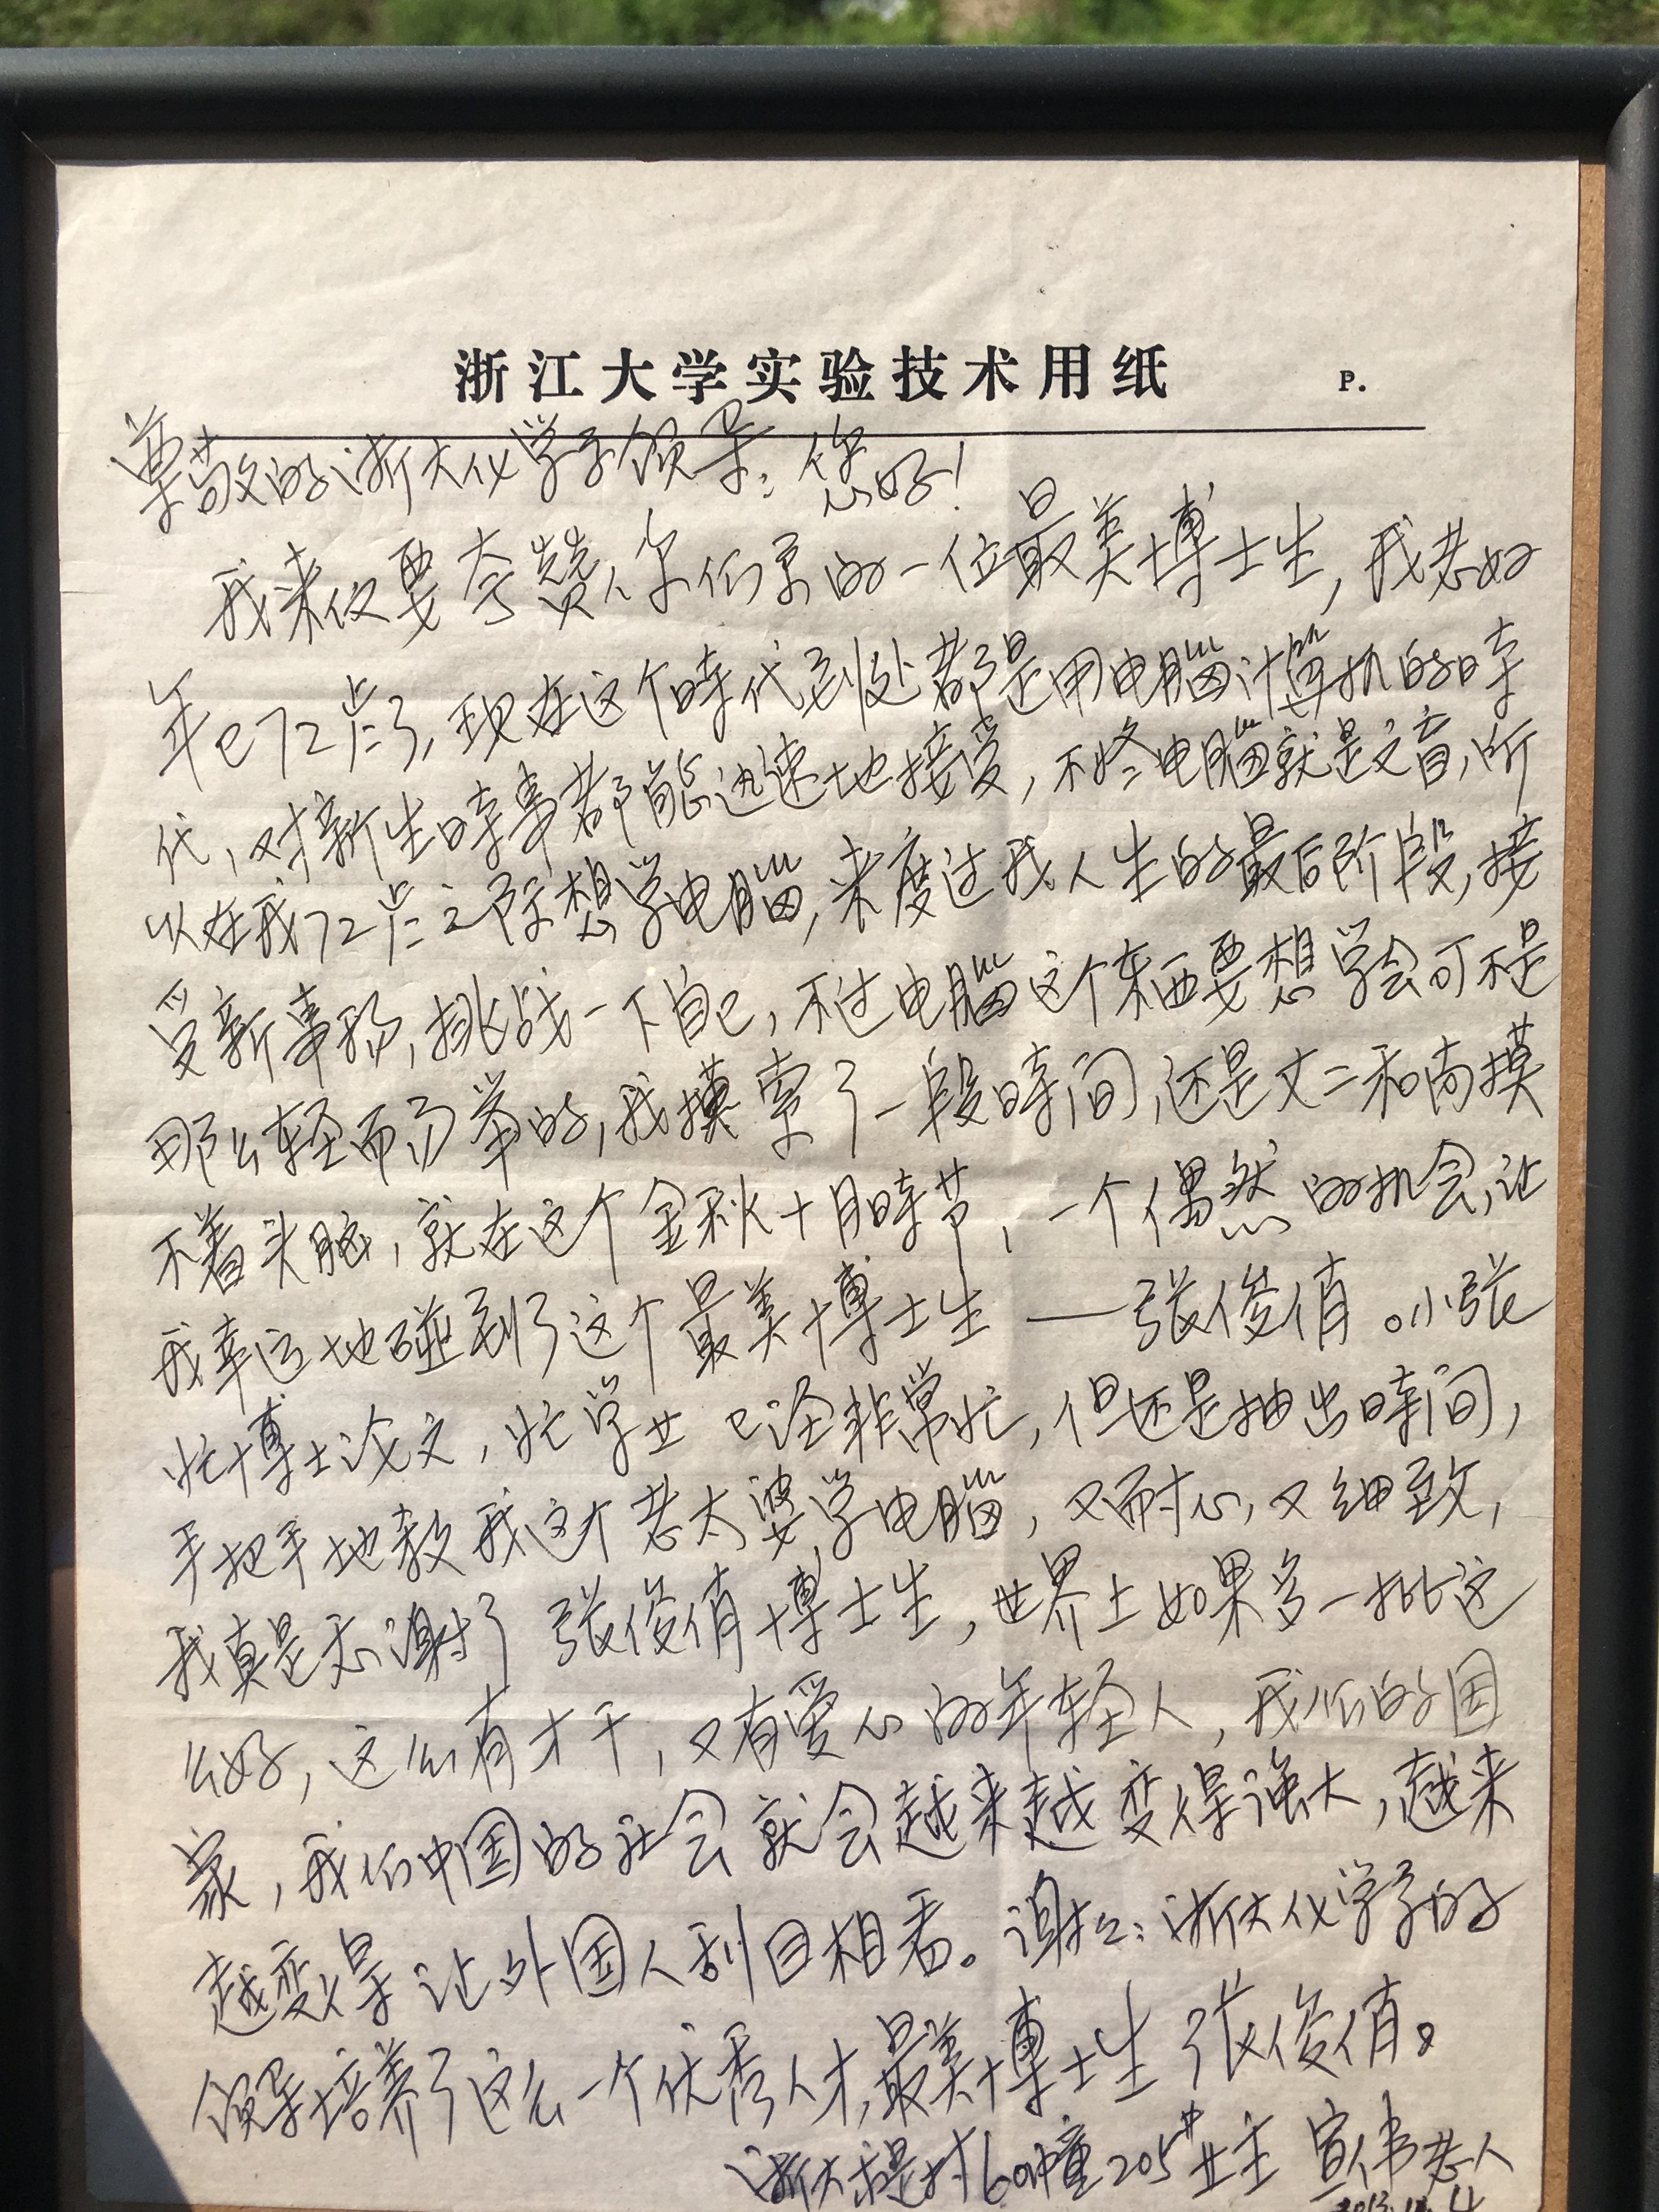 浙江大学实验技术用纸 P.
尊敬的浙大化学系领导:您好!
我来仅要夸赞你们系的一位最美博士生,我老好
年已72岁了,现在这个時代到处都是用电腦计算机的時
代,对新生時事都能迅速地接受,不终电腦就是文盲,所
以在我72岁之际想学电腦,来度过我人生的最后阶段,接
受新事物,挑战一下自己,不过电腦这个东西要想学会可不是
那么轻而易举的,我摸索了一段時间,还是丈二和尚摸
不着头脑,就在这个金秋十月時节,一个偶然的机会,让
我幸运地碰到了这个最美博士生——张俊俏。小张
忙博士论文,忙学业已经非常忙,但还是抽出時间,
手把手地教我这个老太婆学电腦,又耐心,又细致,
我真是太谢谢了张俊俏博士生,世界上如果多一批这
么好,这么有才干,又有爱心的年轻人,我们的国
家,我们中国的社会就会越来越变得强大,越来
越变得让外国人刮目相看。谢谢:浙大化学系的
领导培养了这么一个优秀人才,最美博士生张俊俏。
浙大求是村60幢205#业主 宣伟老人